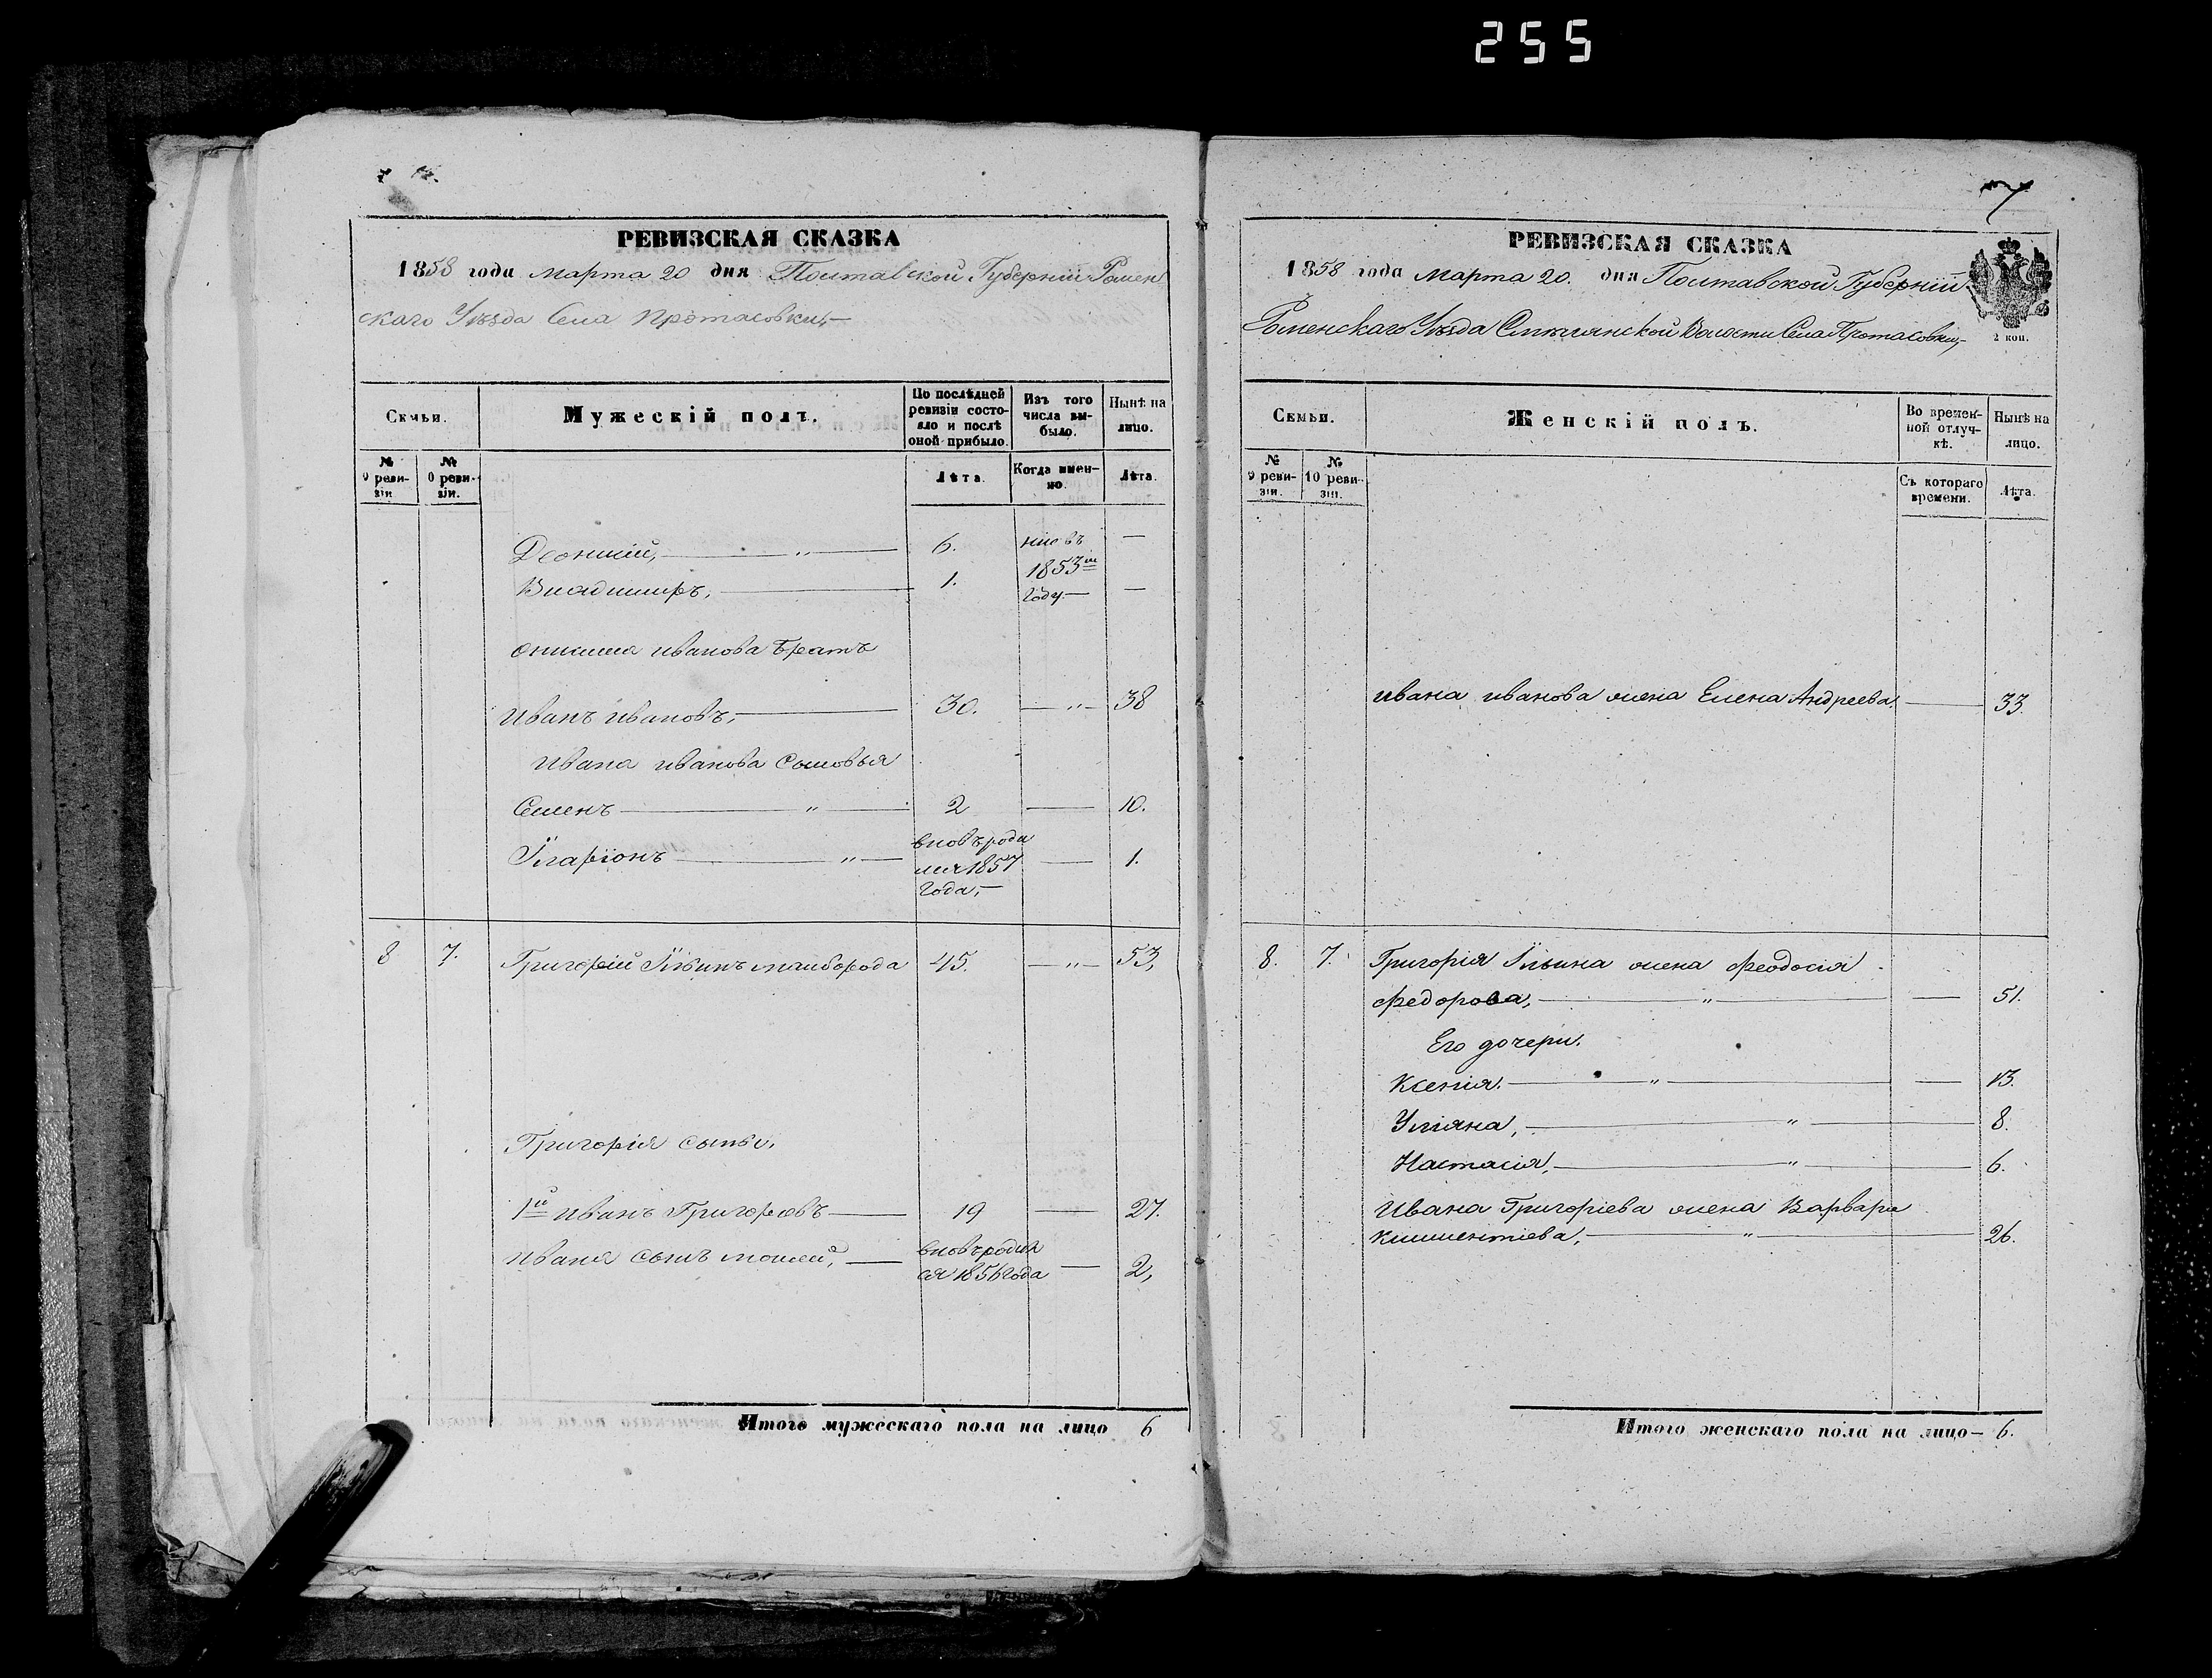 255
РЕВИЗСКАЯ СКАЗКА
1858 года марта 20 дня Полтавской Губерніи Ромен
скаго Уѣзда Села Протасовки,
Семьи.
Мужескій полъ.
По послѣдней ревизіи состояло и послѣ оной прибыло.
Изъ того числа выбыло.
Нынѣ на лицо.
№ 9 ревизіи
№ 0 ревизіи.
Лѣта.
Когда именно.
Лѣта.
6. —
Владимиръ, 1. 1853 году —
иванова братъ
Иванъ Ивановъ, 30. — " — 38
Ивана Иванова сыновья
Семенъ " 2 — 10.
Іларіонъ " вновь роди
лся 1857 — 1.
года,
8 7. Григорій Ільинъ Майборода 45. — " — 53,
Григорія сыны,
1й Иванъ Григорьевъ 19 — 27.
Ивана сынъ вновь родил
ся 1856 года — 2,
Итого мужескаго пола на лицо 6
7
РЕВИЗСКАЯ СКАЗКА
1858 года Марта 20. дня Полтавской Губерніи
Роменскаго Уѣзда Смѣлянской Волости Села Протасовки,
2 коп.
Семьи.
Женскій полъ.
Во временной отлучкѣ.
Нынѣ на лицо.
№ 9 ревизіи.
№ 10 ревизіи.
Съ котораго времени.
Лѣта.
Ивана иванова жена Елена Андреева. — 33.
8. 7. Григорія Ільина жена Феодосія
Федорова, " — 51.
Его дочери.
Ксенія. " — 13.
Уліяна, " 8.
Настасія, " 6.
Ивана Григоріева жена Варвара
Климентіева, " 26.
Итого женскаго пола на лицо — 6.